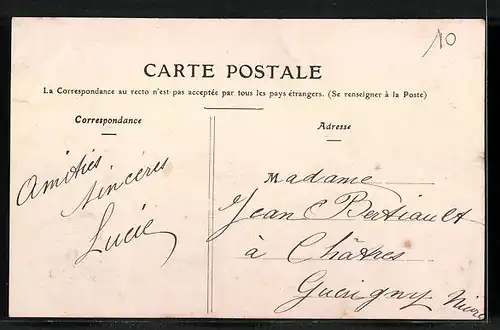 10
CARTE POSTALE
La Correspondance au recto n'est pas acceptée par tous les pays étrangers. (Se renseigner à la Poste)
Correspondance
Adresse
Amitiés
sincères
Lucie
Madame
Jean Bertiault
à Châtres
Guérigny Nièvre